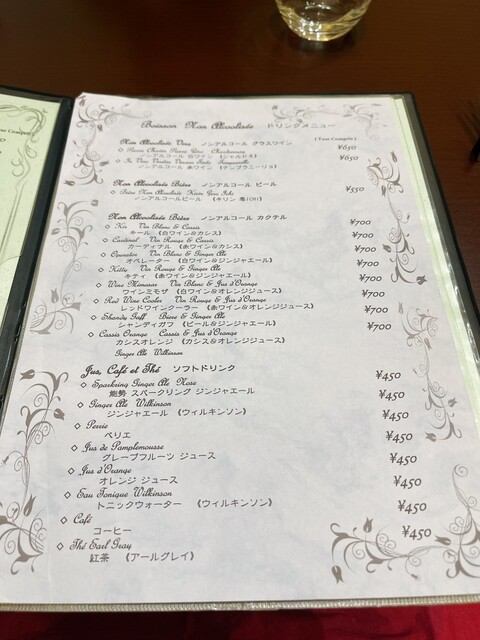 Boisson Non Alcoolisée ドリンクメニュー
( Tax Compris )
Non Alcoolisée Vins ノンアルコール グラスワイン
¥650
ノンアルコール 白ワイン (シャルドネ)
¥650
ノンアルコール 赤ワイン (テンプラニーリョ)
Non Alcoolisée Bière ノンアルコール ビール
¥550
ノンアルコールビール
Non Alcoolisée Bière ノンアルコール カクテル
◇ Kir Vin Blanc & Cassis ¥700
キール (白ワイン&カシス)
◇ Cardinal Vin Rouge & Cassis ¥700
カーディナル (赤ワイン&カシス)
◇ Operator Vin Blanc & Ginger Ale ¥700
オペレーター (白ワイン&ジンジャエール)
◇ Kitty Vin Rouge & Ginger Ale ¥700
キティ (赤ワイン&ジンジャエール)
◇ Wine Mimosas Vin Blanc & Jus d'Orange ¥700
ワインミモザ (白ワイン&オレンジジュース)
◇ Red Wine Cooler Vin Rouge & Jus d'Orange ¥700
レッドワインクーラー (赤ワイン&オレンジジュース)
◇ Shandy Gaff Bière & Ginger Ale ¥700
シャンディガフ (ビール&ジンジャエール)
◇ Cassis Orange Cassis & Jus d'Orange ¥700
カシスオレンジ (カシス&オレンジジュース)
Ginger Ale Wilkinson
Jus, Café et Thé ソフトドリンク
◇ Sparkring Ginger Ale Nose ¥450
能勢 スパークリング ジンジャエール
◇ Ginger Ale Wilkinson ¥450
ジンジャエール (ウィルキンソン)
◇ Perrie ¥450
ペリエ
◇ Jus de Pamplemousse ¥450
グレープフルーツ ジュース
◇ Jus d'Orange ¥450
オレンジ ジュース
◇ Eau Tonique Wilkinson ¥450
トニックウォーター (ウィルキンソン)
◇ Café ¥450
コーヒー
◇ Thé Earl Gray ¥450
紅茶 (アールグレイ)